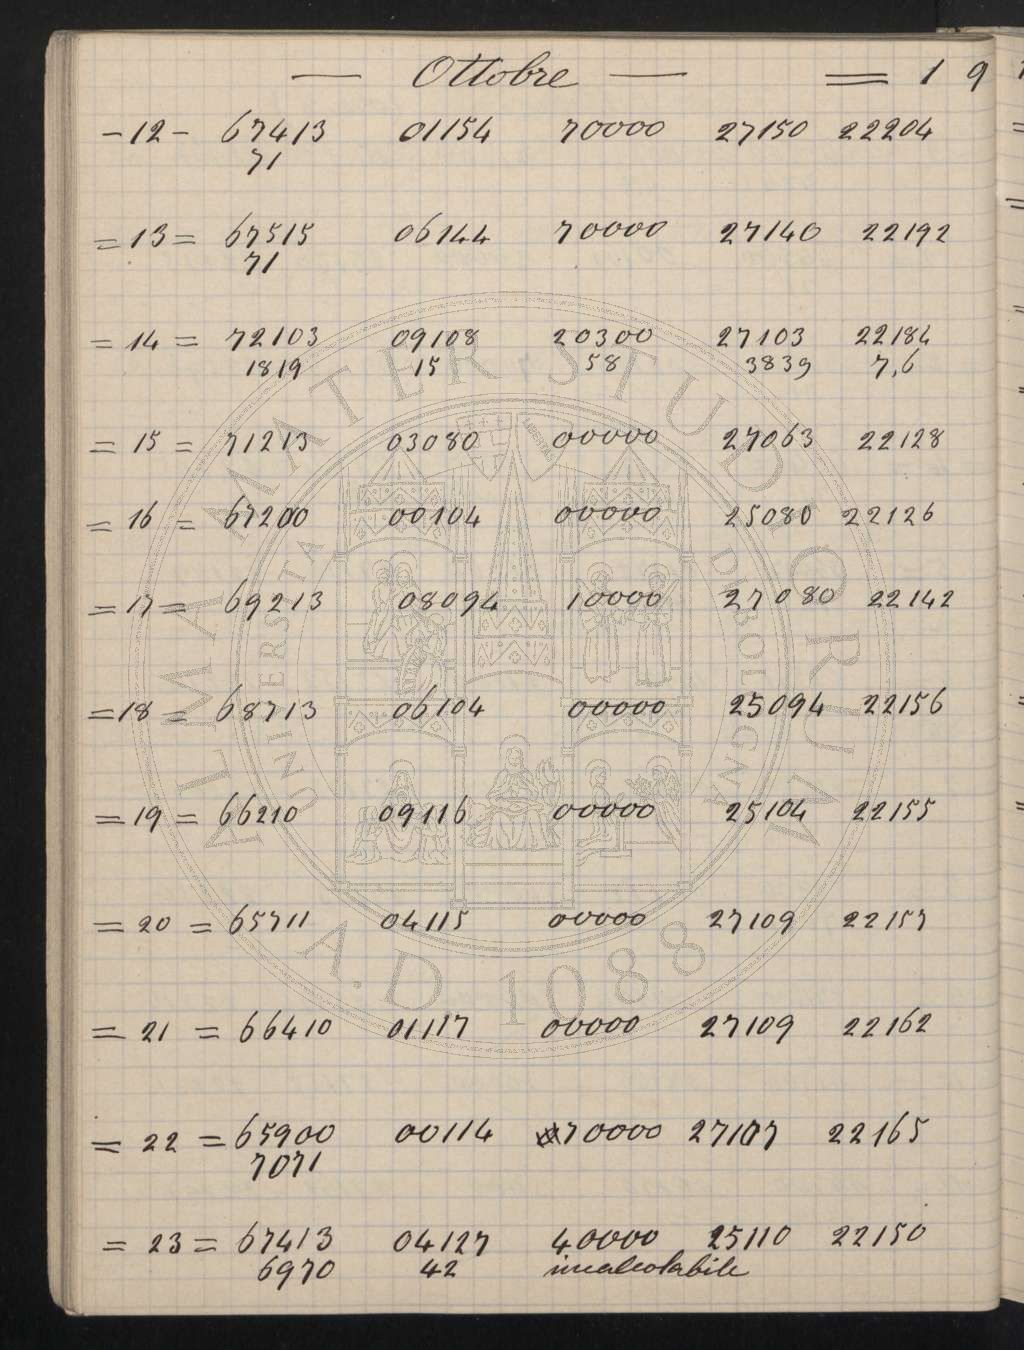 — Ottobre — = 19
- 12 - 67413 01154 70000 27150 22204
71
= 13 = 67515 06144 70000 27140 22192
71
= 14 = 72103 09108 20300 27103 22184
1819 15 58 3839 7,6
= 15 = 71213 03080 00000 27063 22128
= 16 = 67200 00104 00000 25080 22126
= 17 = 69213 08094 10000 27080 22142
= 18 = 68713 06104 00000 25094 22156
= 19 = 66210 09116 00000 25104 22155
= 20 = 65711 04115 00000 27109 22157
= 21 = 66410 01117 00000 27109 22162
= 22 = 65900 00114 70000 27107 22165
7071
= 23 = 67413 04127 40000 25110 22150
6970 42 incalcolabile
ALMA MATER STUDIORUM
UNIVERSITÀ DI BOLOGNA
A.D. 1088